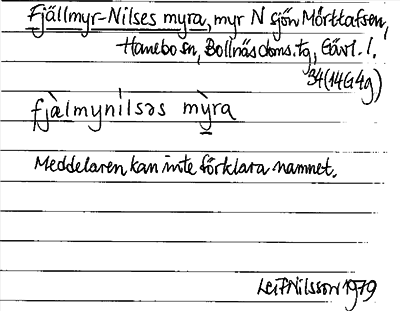 Fjällmyr-Nilses myra, myr N sjön Mörttafsen,
Hanebo sn, Bollnäs doms. tg, Gävl. l.
34(14G4g)
fjàlmyníləs mỳra
Meddelaren kan inte förklara namnet.
Leif Nilsson 1979